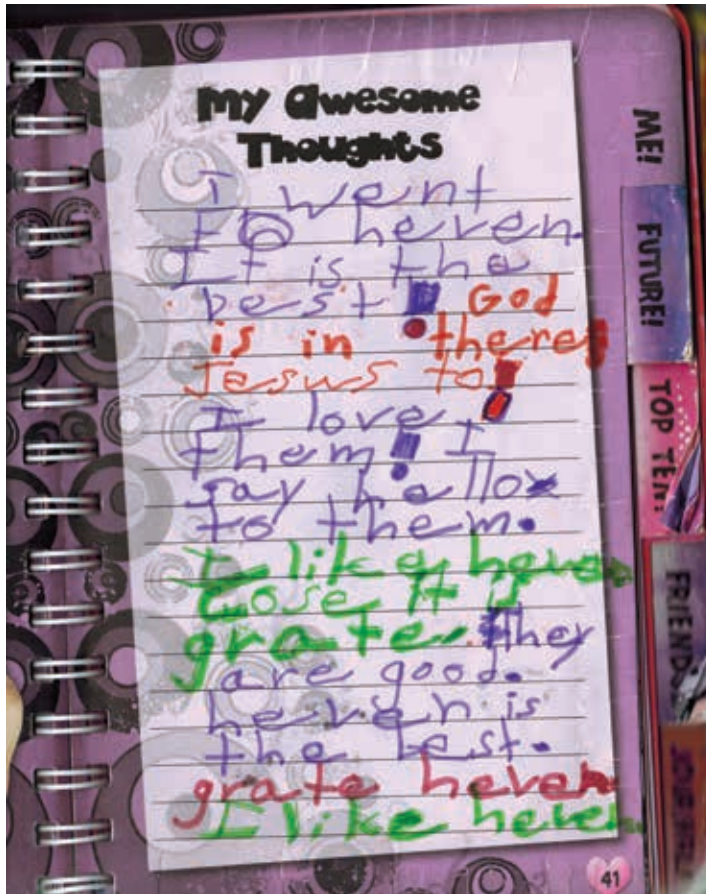 My Awesome
Thoughts
I went
to heven.
It is the
best! God
is in there,
Jesus to!
I love
them! I
say hello
to them.
I like heven
Cose It is
grate. they
are good.
heven is
the best.
grate heven
I like heven
ME!
FUTURE!
TOP TEN!
FRIENDS
41